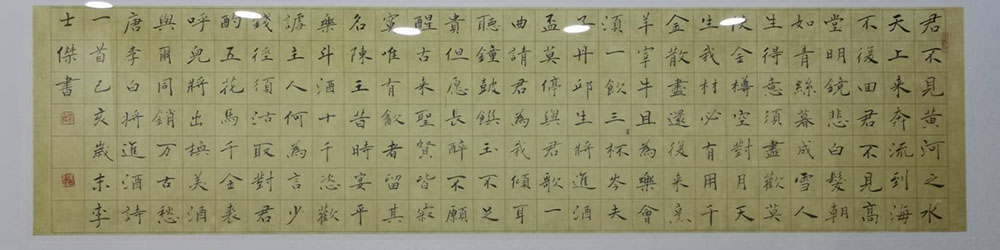 君不見黃河之水
天上来奔流到海
不復回君不見高
堂明鏡悲白髮朝
如青絲暮成雪人
生得意須盡歡莫
使金樽空對月天
生我材必有用千
金散盡還復来烹
羊宰牛且為樂會
須一飲三杯岑夫
子丹邱生將進酒
盃莫停與君歌一
曲請君為我傾耳
聽鐘鼓饌玉不足
貴但愿長醉不願
醒古来聖賢皆寂
寞唯有飲者留其
名陳王昔時宴平
樂斗酒十千恣歡
謔主人何為言少
錢徑須沽取對君
酌五花馬千金裘
呼兒將出換美酒
與爾同銷万古愁
唐李白將進酒詩
一首己亥歲末李
士傑書